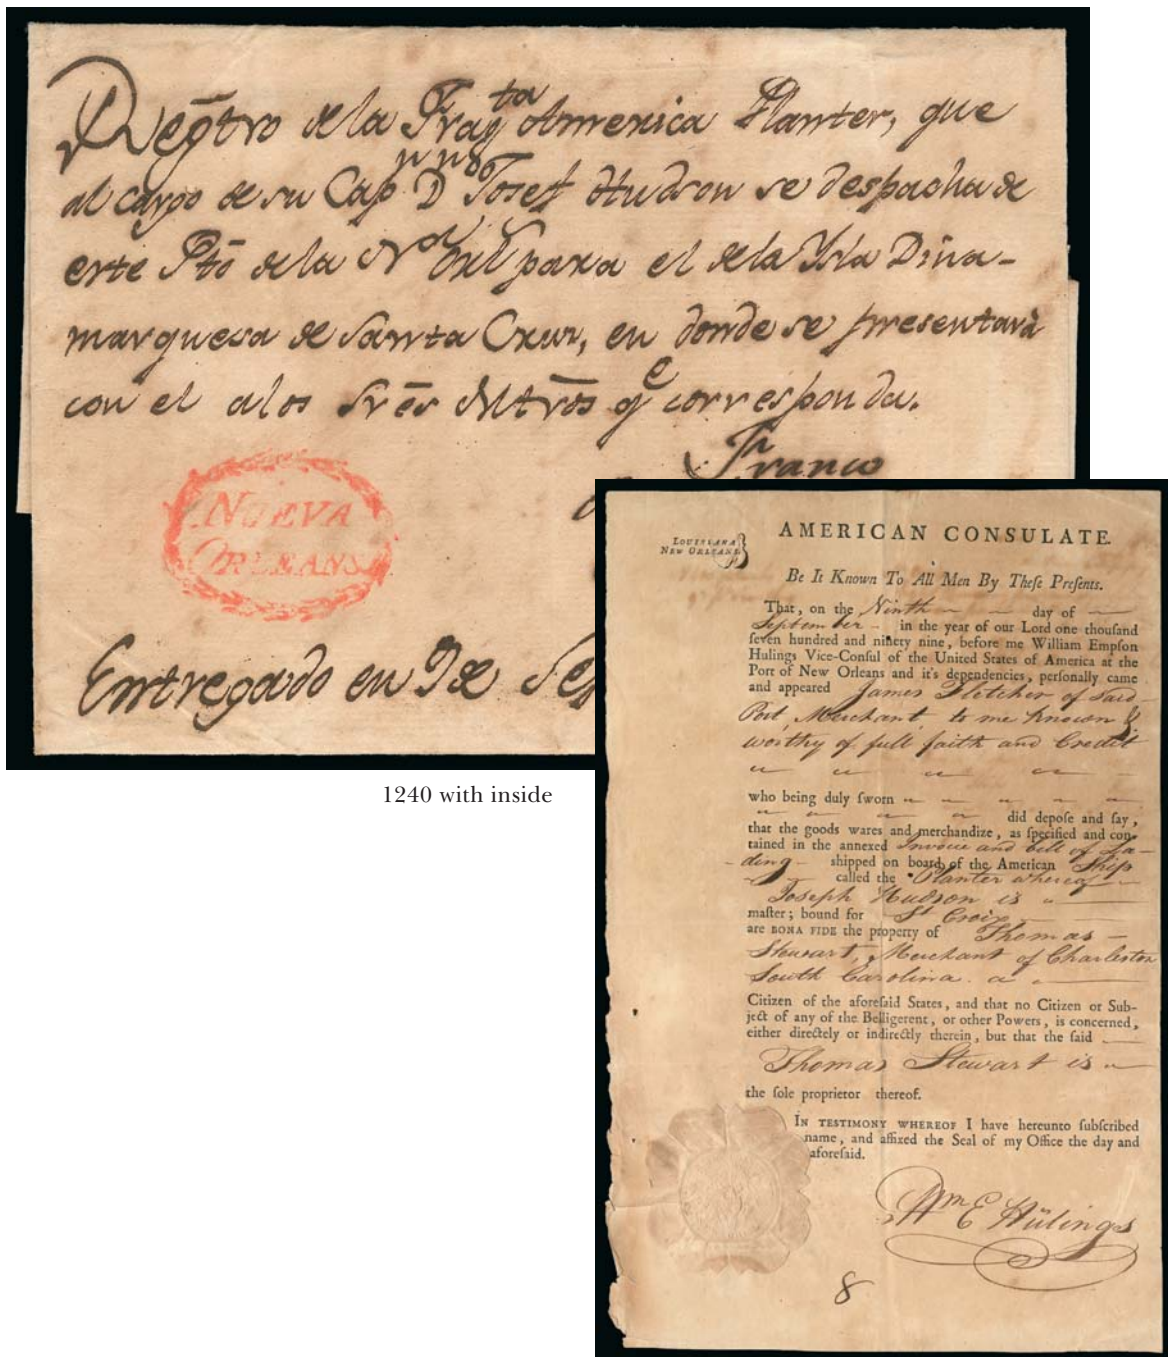 Regtro de la Fragta America Planter, que
al cargo de su Capn Dn Josef Hudson se despacha de
este Pto de la Na Orls para el de la Ysla Dina-
marquesa de Santa Cruz, en donde se presentará
con el a los Sres Mtros qe corresponda.
Franco
NUEVA
ORLEANS
Entregado en 9 de Sep
1240 with inside
LOUISIANA
NEW ORLEANS
AMERICAN CONSULATE.
Be It Known To All Men By Theſe Preſents.
That, on the Ninth day of
September in the year of our Lord one thouſand
ſeven hundred and ninety nine, before me William Empſon
Hulings Vice-Conſul of the United States of America at the
Port of New Orleans and it's dependencies, perſonally came
and appeared James Fletcher of said
Port, Merchant to me known &
worthy of full faith and Credit
who being duly ſworn
did depoſe and ſay,
that the goods wares and merchandize, as ſpecified and con-
tained in the annexed Invoice and bill of La-
ding - ſhipped on board of the American Ship
called the Planter whereof
Joseph Hudson is
maſter; bound for St Croix
are BONA FIDE the property of Thomas
Stewart, Merchant of Charleston
South Carolina. a
Citizen of the aforeſaid States, and that no Citizen or Sub-
ject of any of the Belligerent, or other Powers, is concerned,
either directely or indirectly therein, but that the ſaid
Thomas Stewart is
the ſole proprietor thereof.
IN TESTIMONY WHEREOF I have hereunto ſubſcribed
name, and affixed the Seal of my Office the day and
aforeſaid.
Wm E Hülings
8